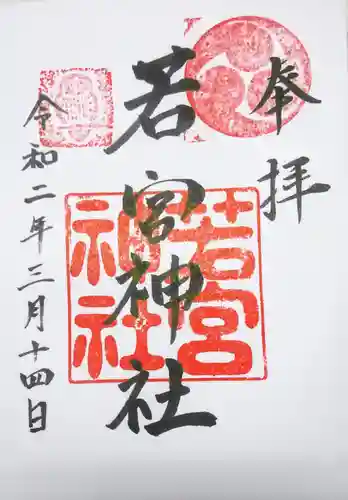 奉拝
若宮神社
若宮
神社
令和二年三月十四日